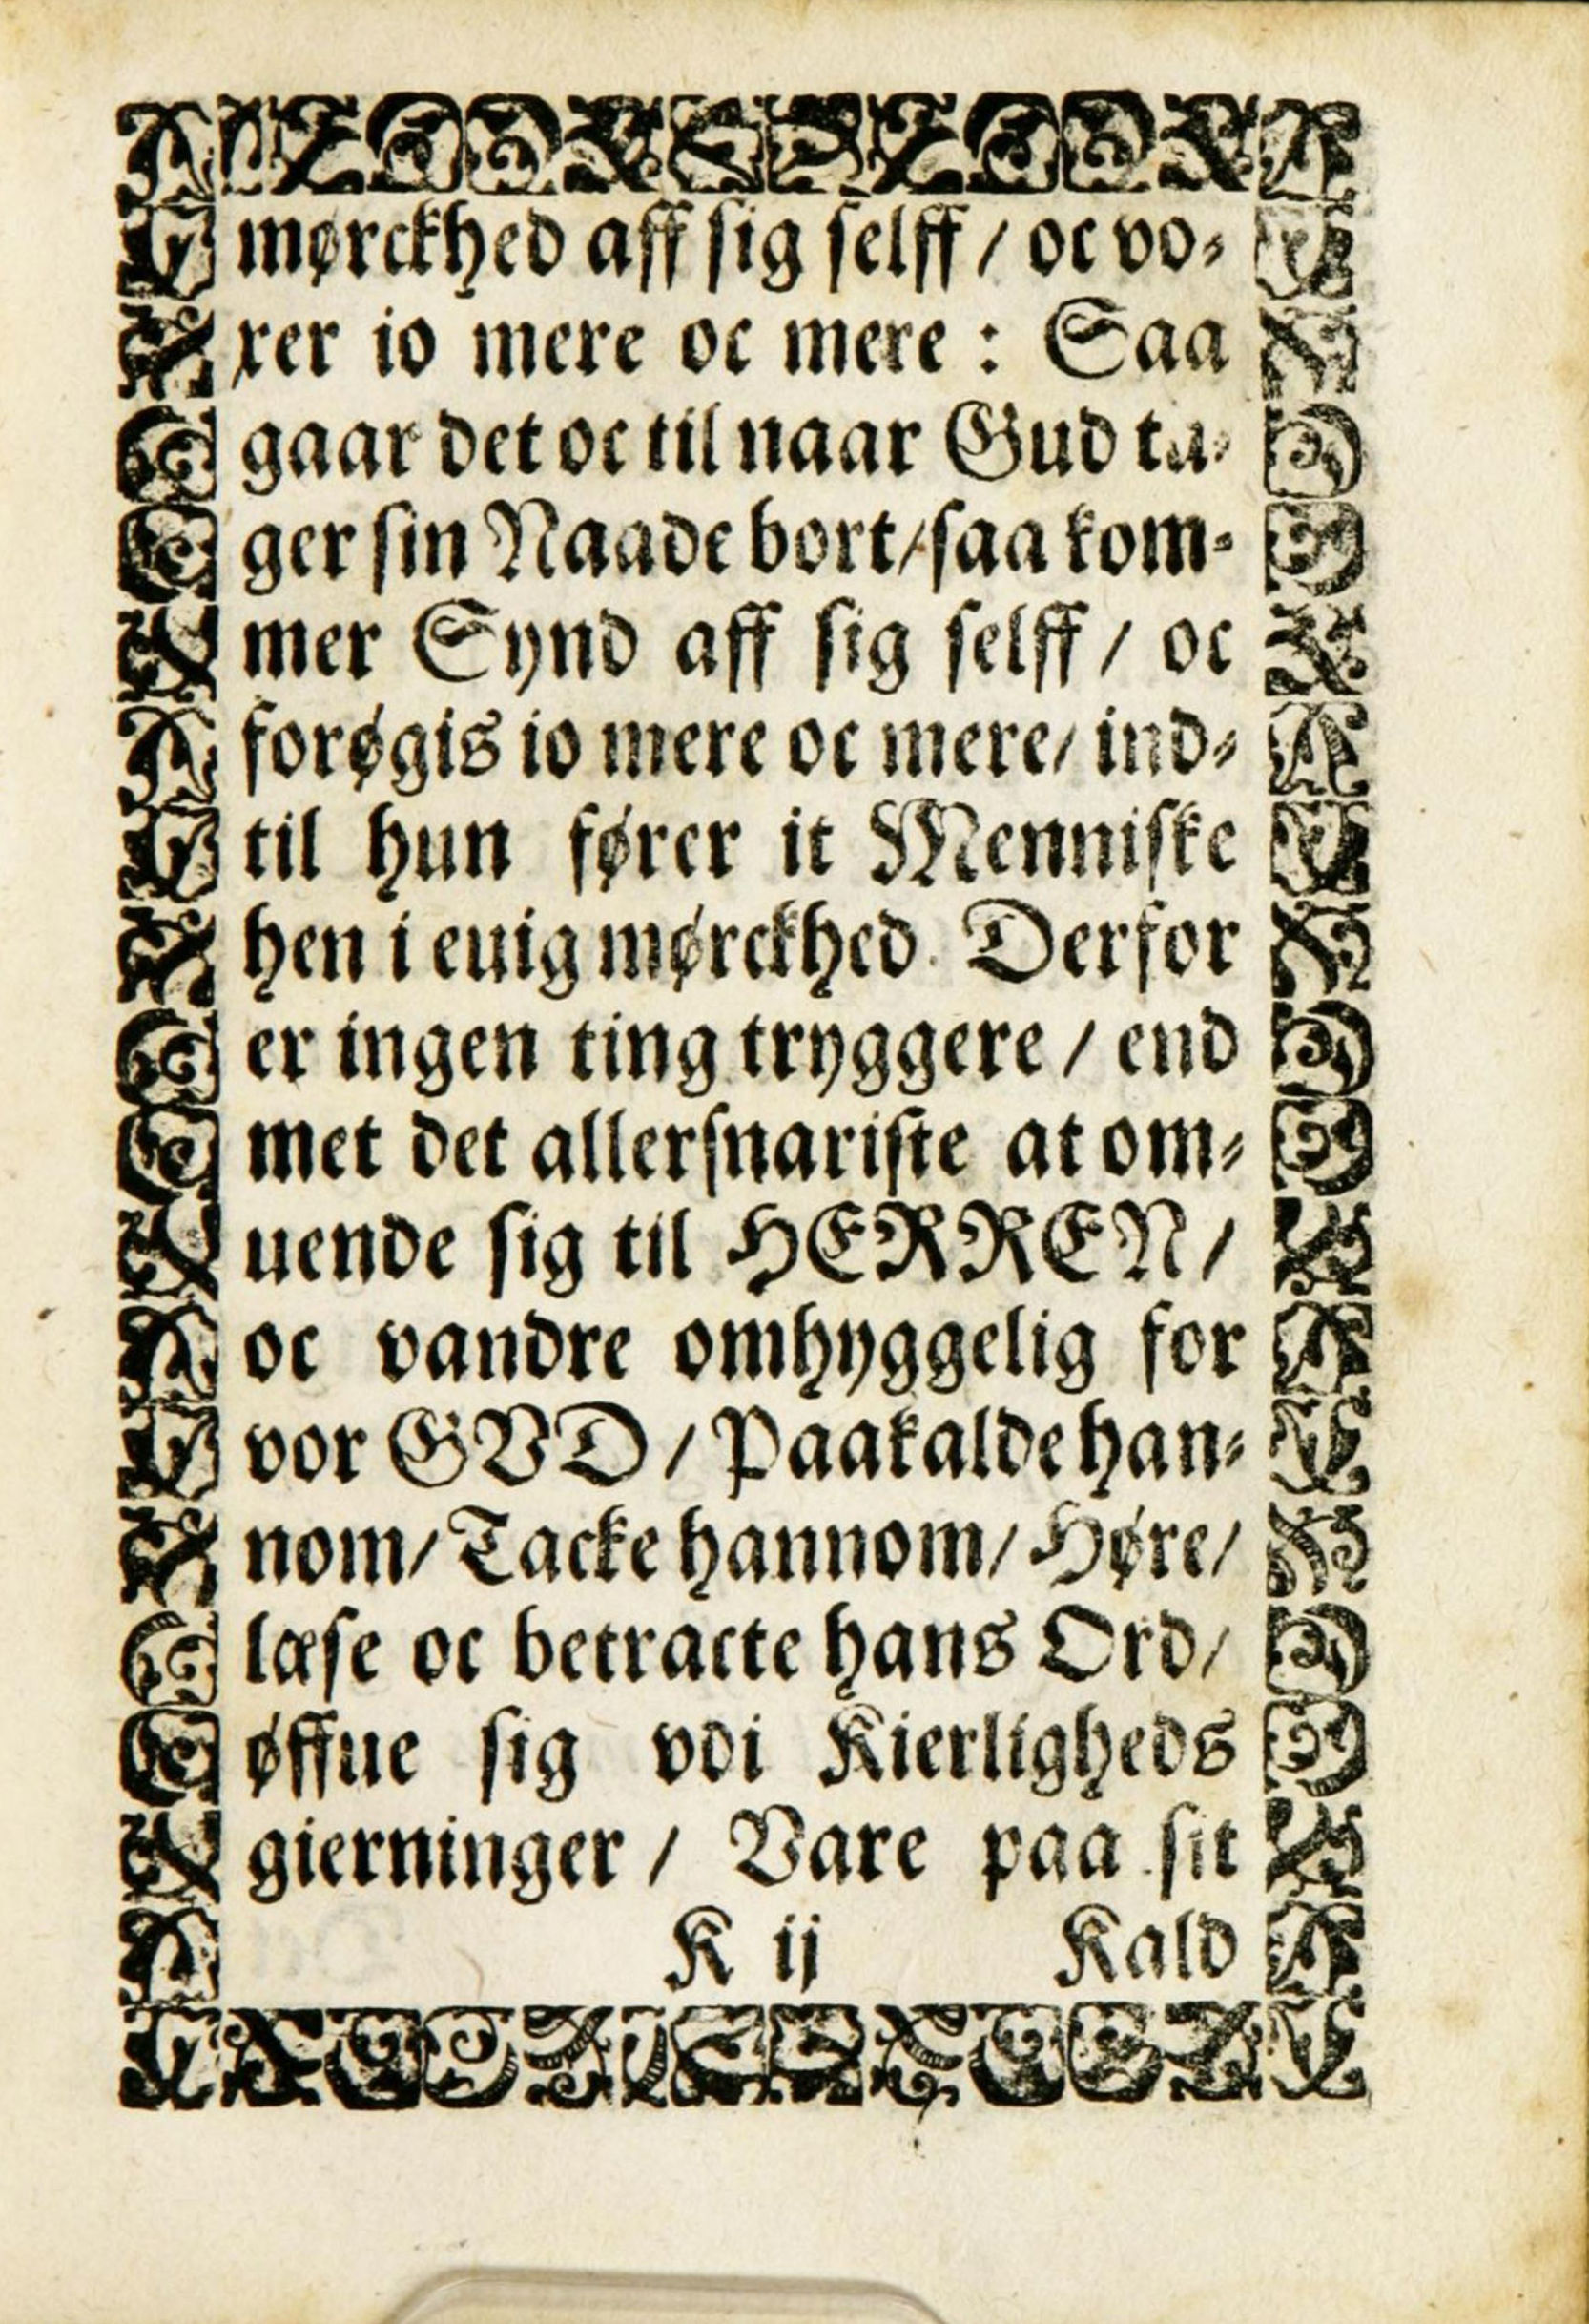 mørckhed aff sig selff / oc vo-
xer io mere oc mere : Saa
gaar det oc til naar Gud ta-
ger sin Naade bort / saa kom-
mer Synd aff sig selff / oc
forøgis io mere oc mere / ind-
til hun fører it Menniske
hen i euig mørckhed. Derfor
er ingen ting tryggere / end
met det allersnariste at om-
uende sig til HERREN /
oc vandre omhyggelig for
vor GVD / Paakalde han-
nom / Tacke hannom / Høre /
læse oc betracte hans Ord /
øffue sig vdi Kierligheds
gierninger / Vare paa sit
K ij Kald